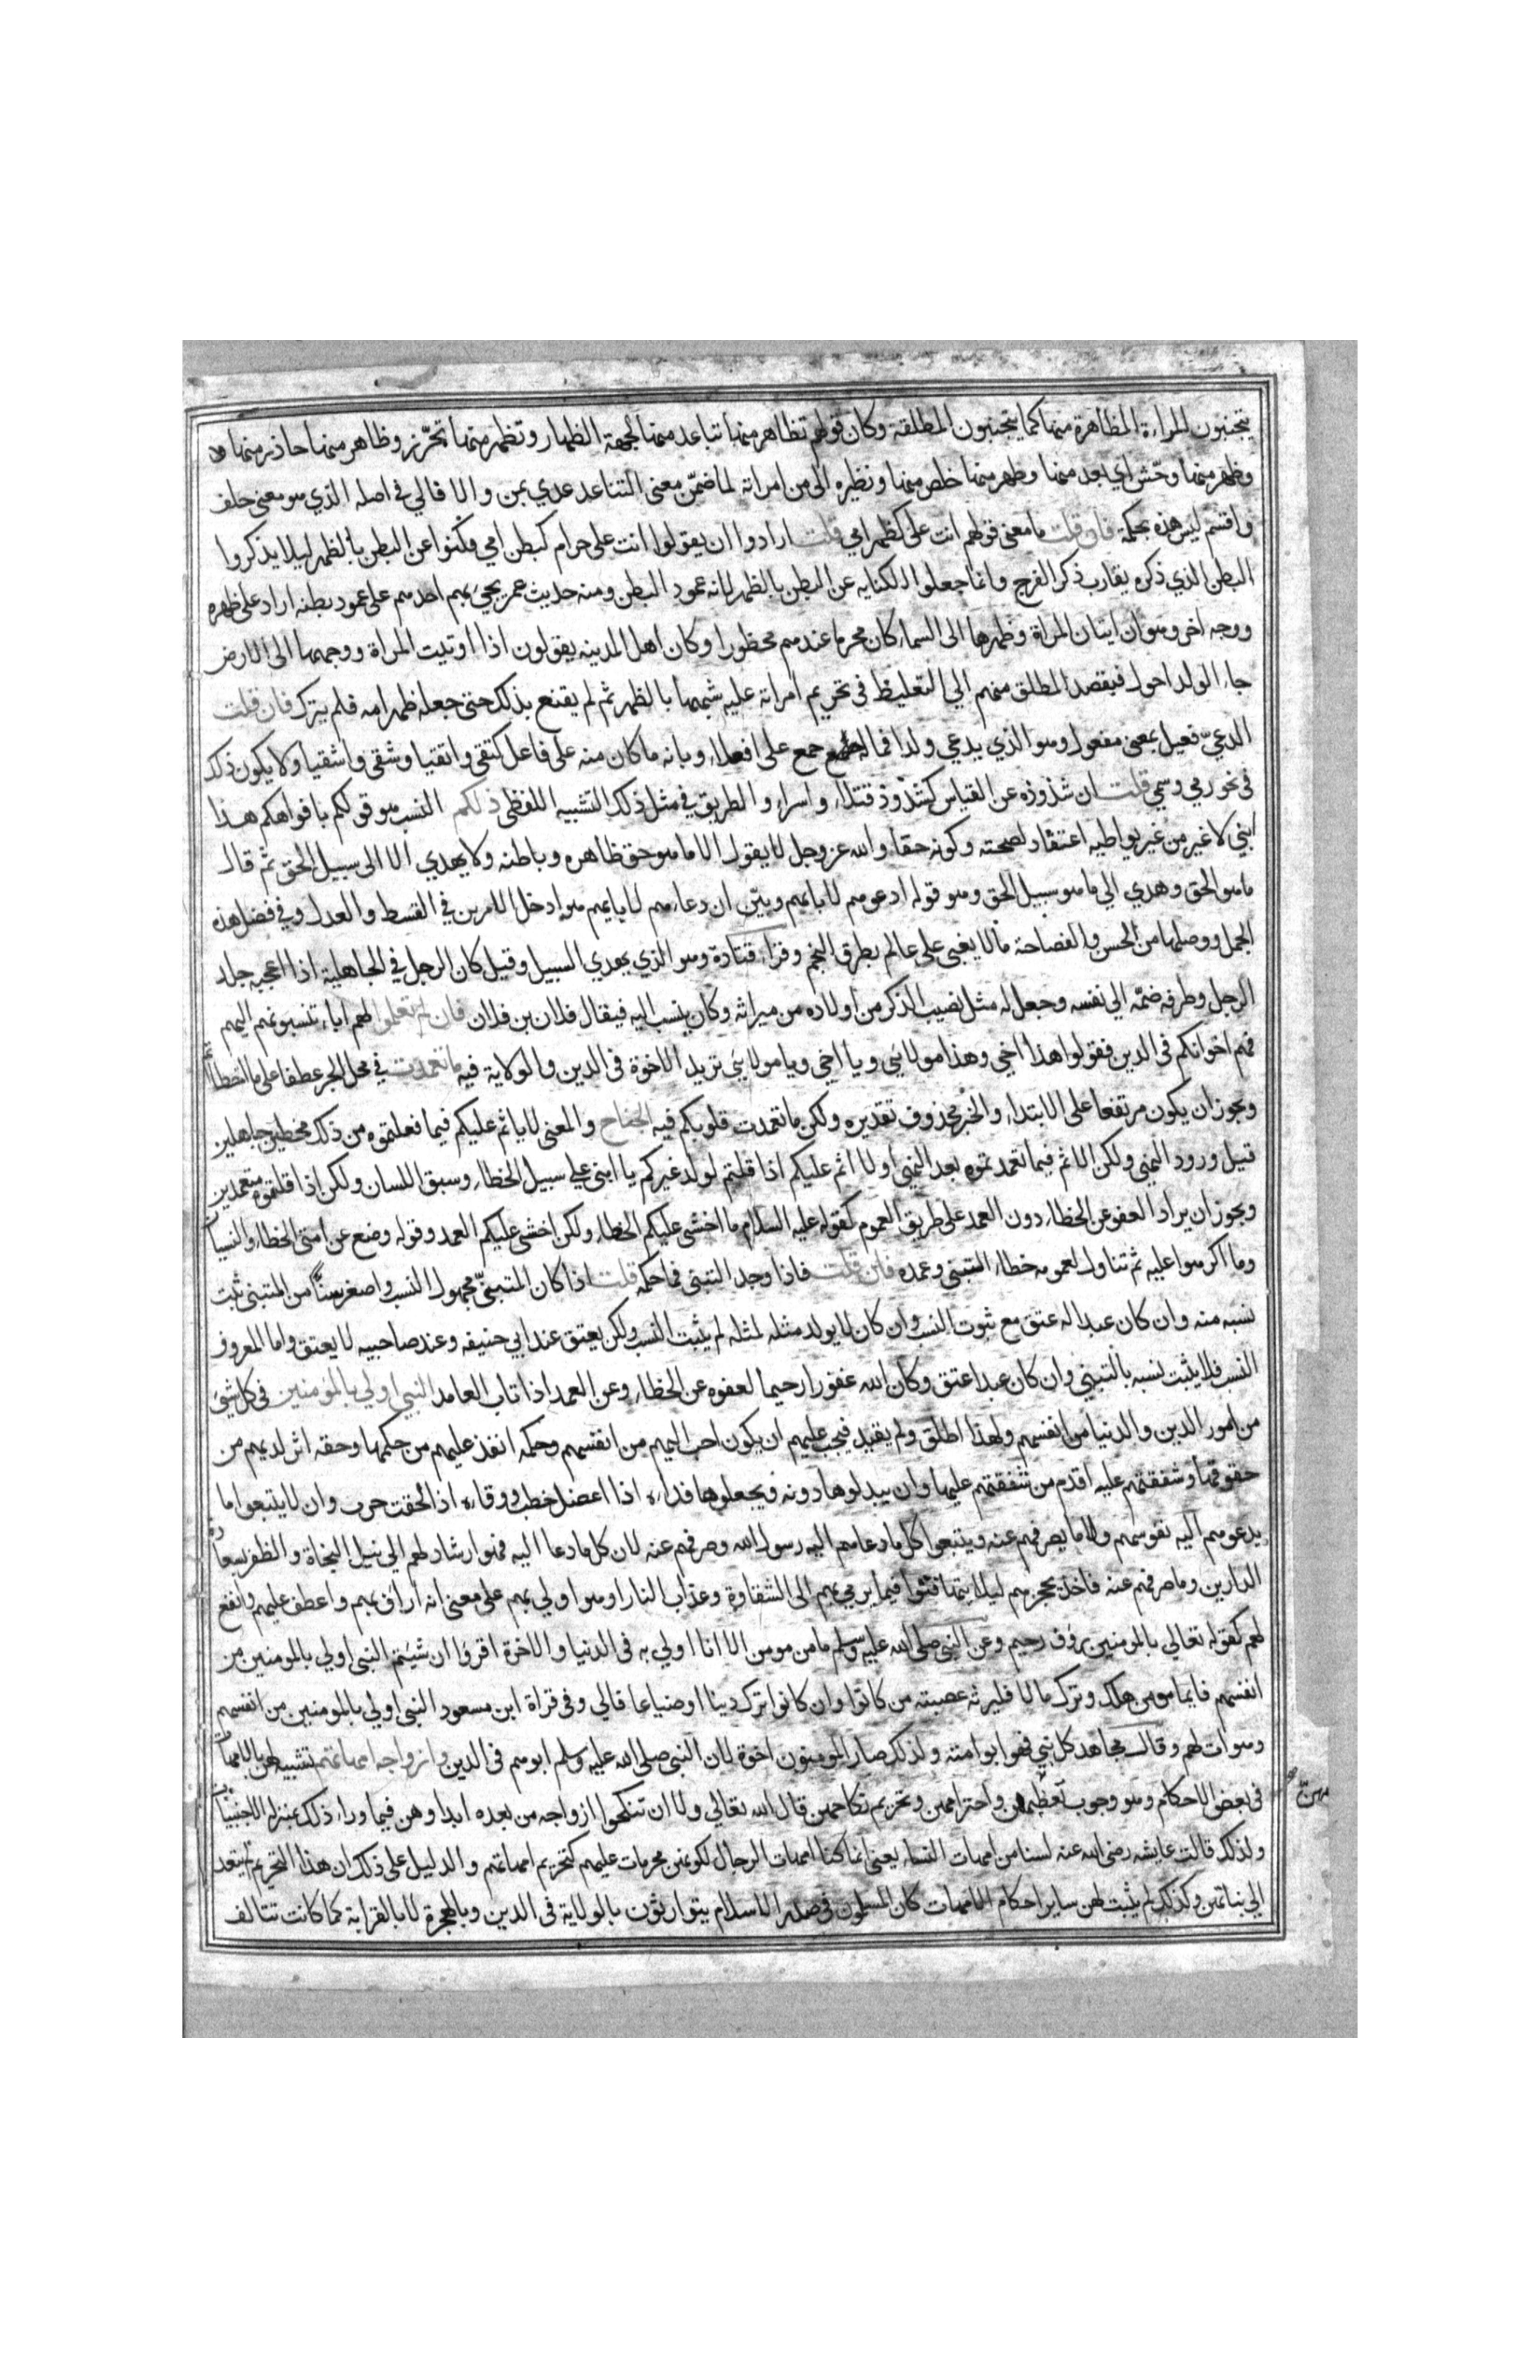 يتجنبون المراءة المظاهرة منها كما يتجنبون المطلقة وكان قولهم تظاهر منها تباعد منها لجهة الظهار وتظهر منها تحرّز وظاهر منها حاذر منها
وظهر منها وحّش اي بعد منها وظهر منها خلص منها ونظيره الى من امراته لما ضمّن معنى التباعد عدي بمن والا فالي في اصله الذي هو معنى حلف
واقسم ليس هذه بحكمة فان قلت ما معنى قولهم انت على كظهر امي قلت ارادوا ان يقولوا انت على حرام كبطن امي فكنوا عن البطن بالظهر ليلا يذكروا
البطن الذي ذكره يقارب ذكر الفرج وانما جعلوا الكنايه عن البطن بالظهر لانه عمود البطن ومنه حديث عمر يجي بهم احدهم على عمود بطنه اراد على ظهره
ووجه اخر وهو ان ايتان المراة وظهرها الى السماء كان محرما عندهم محظورا وكان اهل المدينه يقولون اذا اوتيت المراة ووجهها الى الارض
جاء الولد احول فبقصد المطلق منهم الى التغليظ في تحريم امراته عليه شبهها بالظهر ثم لم يقنع بذلك حتى جعله ظهر امه فلم يترك فان قلت
الدعيّ فعيل بمعنى مفعول وهو الذي يدعي ولدا فما له جمع على افعلاء وبابه ما كان منه على فاعل كتقي واتقيا وشقي واشقيا ولا يكون ذلك
في نحو رمي وسمي قلت ان شذوذه عن القياس كشذوذ قتلاء واسراء والطريق في مثل ذلك التشبيه اللفظي ذلكم النسب هو قولكم بافواهكم هذا
ابني لا غير من غير يواطيه اعتقاد لصحته وكونه حقا والله عز وجل لا يقول الا ما هو حق ظاهره وباطنه ولا يهدي الا الى سبيل الحق ثم قال
ما هو الحق وهدي الي ما هو سبيل الحق وهو قوله ادعوهم لابايهم وبيّن ان دعاءهم لابايهم هو ادخل الامرين في القسط والعدل وفي فصل هذه
الجمل ووصلها من الحسن والفصاحة ما لا يغبى على عالم بطرق النجم وقراء قتادة وهو الذي يهدي السبيل وقيل كان الرجل في الجاهلية اذا اعجبه جلد
الرجل وظرفه ضمّه الي نفسه وجعل له مثل نصيب الذكر من اولاده من ميراثه وكان ينسب اليه فيقال فلان بن فلان فان لم تعلموا لهم اباء تنسبونهم اليهم
فهم اخوانكم في الدين فقولوا هذا اخي وهذا مولائي ويا اخي ويا مولائي تريد الاخوة في الدين والولاية فيه ما تعمدت في محل الجر عطفا على ما اخطاتم
ويجوز ان يكون مرتفعا على الابتداء والخبر محذوف تقديره ولكن ما تعمدت قلوبكم فيه الجناح والمعنى لا ياثم عليكم فيما فعلتموه من ذلك مخطين جاهلين
قبل ورود النهي ولكن الاثم فيما تعمدتموه بعد النهي او لا اثم عليكم اذا قلتم لولد غيركم يا ابني على سبيل الخطاء وسبق اللسان ولكن اذا قلتموه متعمدين
ويجوز ان يراد العفو عن الخطاء دون العمد على طريق العموم كقوله عليه السلام ما اخشى عليكم الخطاء ولكن اخشى عليكم العمد وقوله وضع عن امتى الخطاء والنسيا
وما اكرهوا عليه ثم تناول لعمومه خطاء التبني وعمده فان قلت فاذا وجد التبني فما حكمه قلت اذا كان المتبنيّ مجهول النسب واصغر سنًّا من المتبني ثبت
نسبه منه وان كان عبدا له عتق مع ثبوت النسب وان كان لا يولد مثله لمثله لم يثبت النسب ولكن يعتق عند ابي حنيفه وعند صاحبيه لا يعتق واما المعروف
النسب فلا يثبت نسبه بالتبني وان كان عبدا عتق وكان الله غفورا رحيما لعفوه عن الخطاء وعن العمد اذا تاب العامد النبي اولي بالمومنين في كل شئ
من امور الدين والدنيا من انفسهم ولهذا اطلق ولم يقيد فيجب عليهم ان يكون احب اليهم من انفسهم وحكمه انفذ عليهم من حكمها وحقه اثر لديهم من
حقوقها وشفقتهم عليه اقدم من شفقتهم عليها وان يبدلوها دونه ويجعلوها فداءه اذا اعضل خطب ووقاءه اذا لحقت حرب وان لا يتبعوا ما
يدعوهم اليه نفوسهم ولا ما يصرفهم عنه ويتبعوا كل ما دعاهم اليه رسول الله وصرفهم عنه لان كل ما دعا اليه فهو ارشاد لهم الي نيل النجاة والظفر بسعاده
الدارين وما صرفهم عنه فاخذ بحجزهم ليلا يتهافتوا فيما يرمي بهم الى الشقاوة وعذاب النار او هو اولي بهم على معنى انه اراق بهم واعطف عليهم وانفع
لهم كقوله تعالي بالمومنين رؤف رحيم وعن النبي صلى الله عليه وسلم ما من مومن الا انا اولي به في الدنيا والاخرة اقروا ان شيتم النبي اولي بالمومنين من
انفسهم فايما مومن هلك وترك مالا فليرثه عصبته من كانوا وان كانوا ترك دينا او ضياعا فالي وفي قراة ابن مسعود النبي اولي بالمومنين من انفسهم
وهو اب لهم وقال مجاهد كل نبي فهو ابو امته ولذلك صار المومنون اخوة لان النبي صلى الله عليه وسلم ابوهم في الدين وازواجه امهاتهم تشبيه لهن بالامهات
في بعض الاحكام وهو وجوب تعظيمهن واحترامهن وتحريم نكاحهن قال الله تعالي ولا ان تنكحوا ازواجه من بعده ابدا وهن فيما وراء ذلك بمنزلة الاجنبيات
ولذلك قالت عايشه رضى الله عنه لسنا من امهات النساء يعني انما كنا امهات الرجال لكونهن محرمات عليهم كتحريم امهاتهم والدليل على ذلك ان هذا التحريم لم يتعد
الي بناتهن وكذلك لم يثبت لهن ساير احكام الامهات كان المسلمون في صدر الاسلام يتوارثون بالولاية في الدين وبالهجرة لا بالقرابة كما كانت تتالف